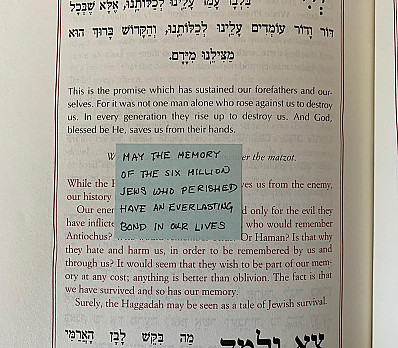 בלבד עמד עלינו לכלותנו, אלא שבכל
דור ודור עומדים עלינו לכלותנו, והקדוש ברוך הוא
מצילנו מידם.
This is the promise which has sustained our forefathers and our-
selves. For it was not one man alone who rose against us to destroy
us. In every generation they rise up to destroy us. And God,
blessed be He, saves us from their hands.
er the matzot.
MAY THE MEMORY
OF THE SIX MILLION
JEWS WHO PERISHED
HAVE AN EVERLASTING
BOND IN OUR LIVES
While the ves us from the enemy,
our history
Our ene d only for the evil they
have inflicte , who would remember
Antiochus? Or Haman? Is that why
they hate and harm us, in order to be remembered by us and
through us? It would seem that they wish to be part of our mem-
ory at any cost; anything is better than oblivion. The fact is that
we have survived and so has our memory.
Surely, the Haggadah may be seen as a tale of Jewish survival.
צא ולמד מה בקש לבן הארמי